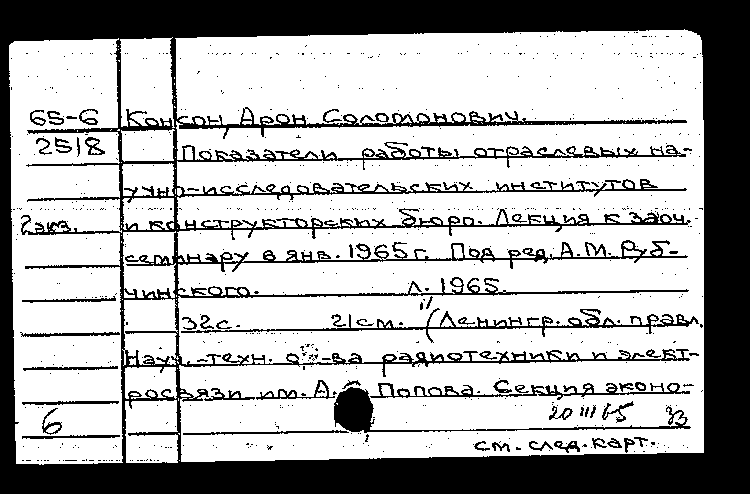 65-6 Консон, Арон Соломонович.
2518 Показатели работы отраслевых на-
учно-исследовательских институтов
2 экз. и конструкторских бюро. Лекция к заоч.
семинару в янв. 1965 г. Под ред. А.М. Руб-
чинского. Л. 1965.
32 с. 21 см. (Ленингр. обл. правл.
Науч.-техн. о-ва радиотехники и элект-
росвязи им. А. Попова. Секция эконо-
6 20 III 65
см. след. карт.